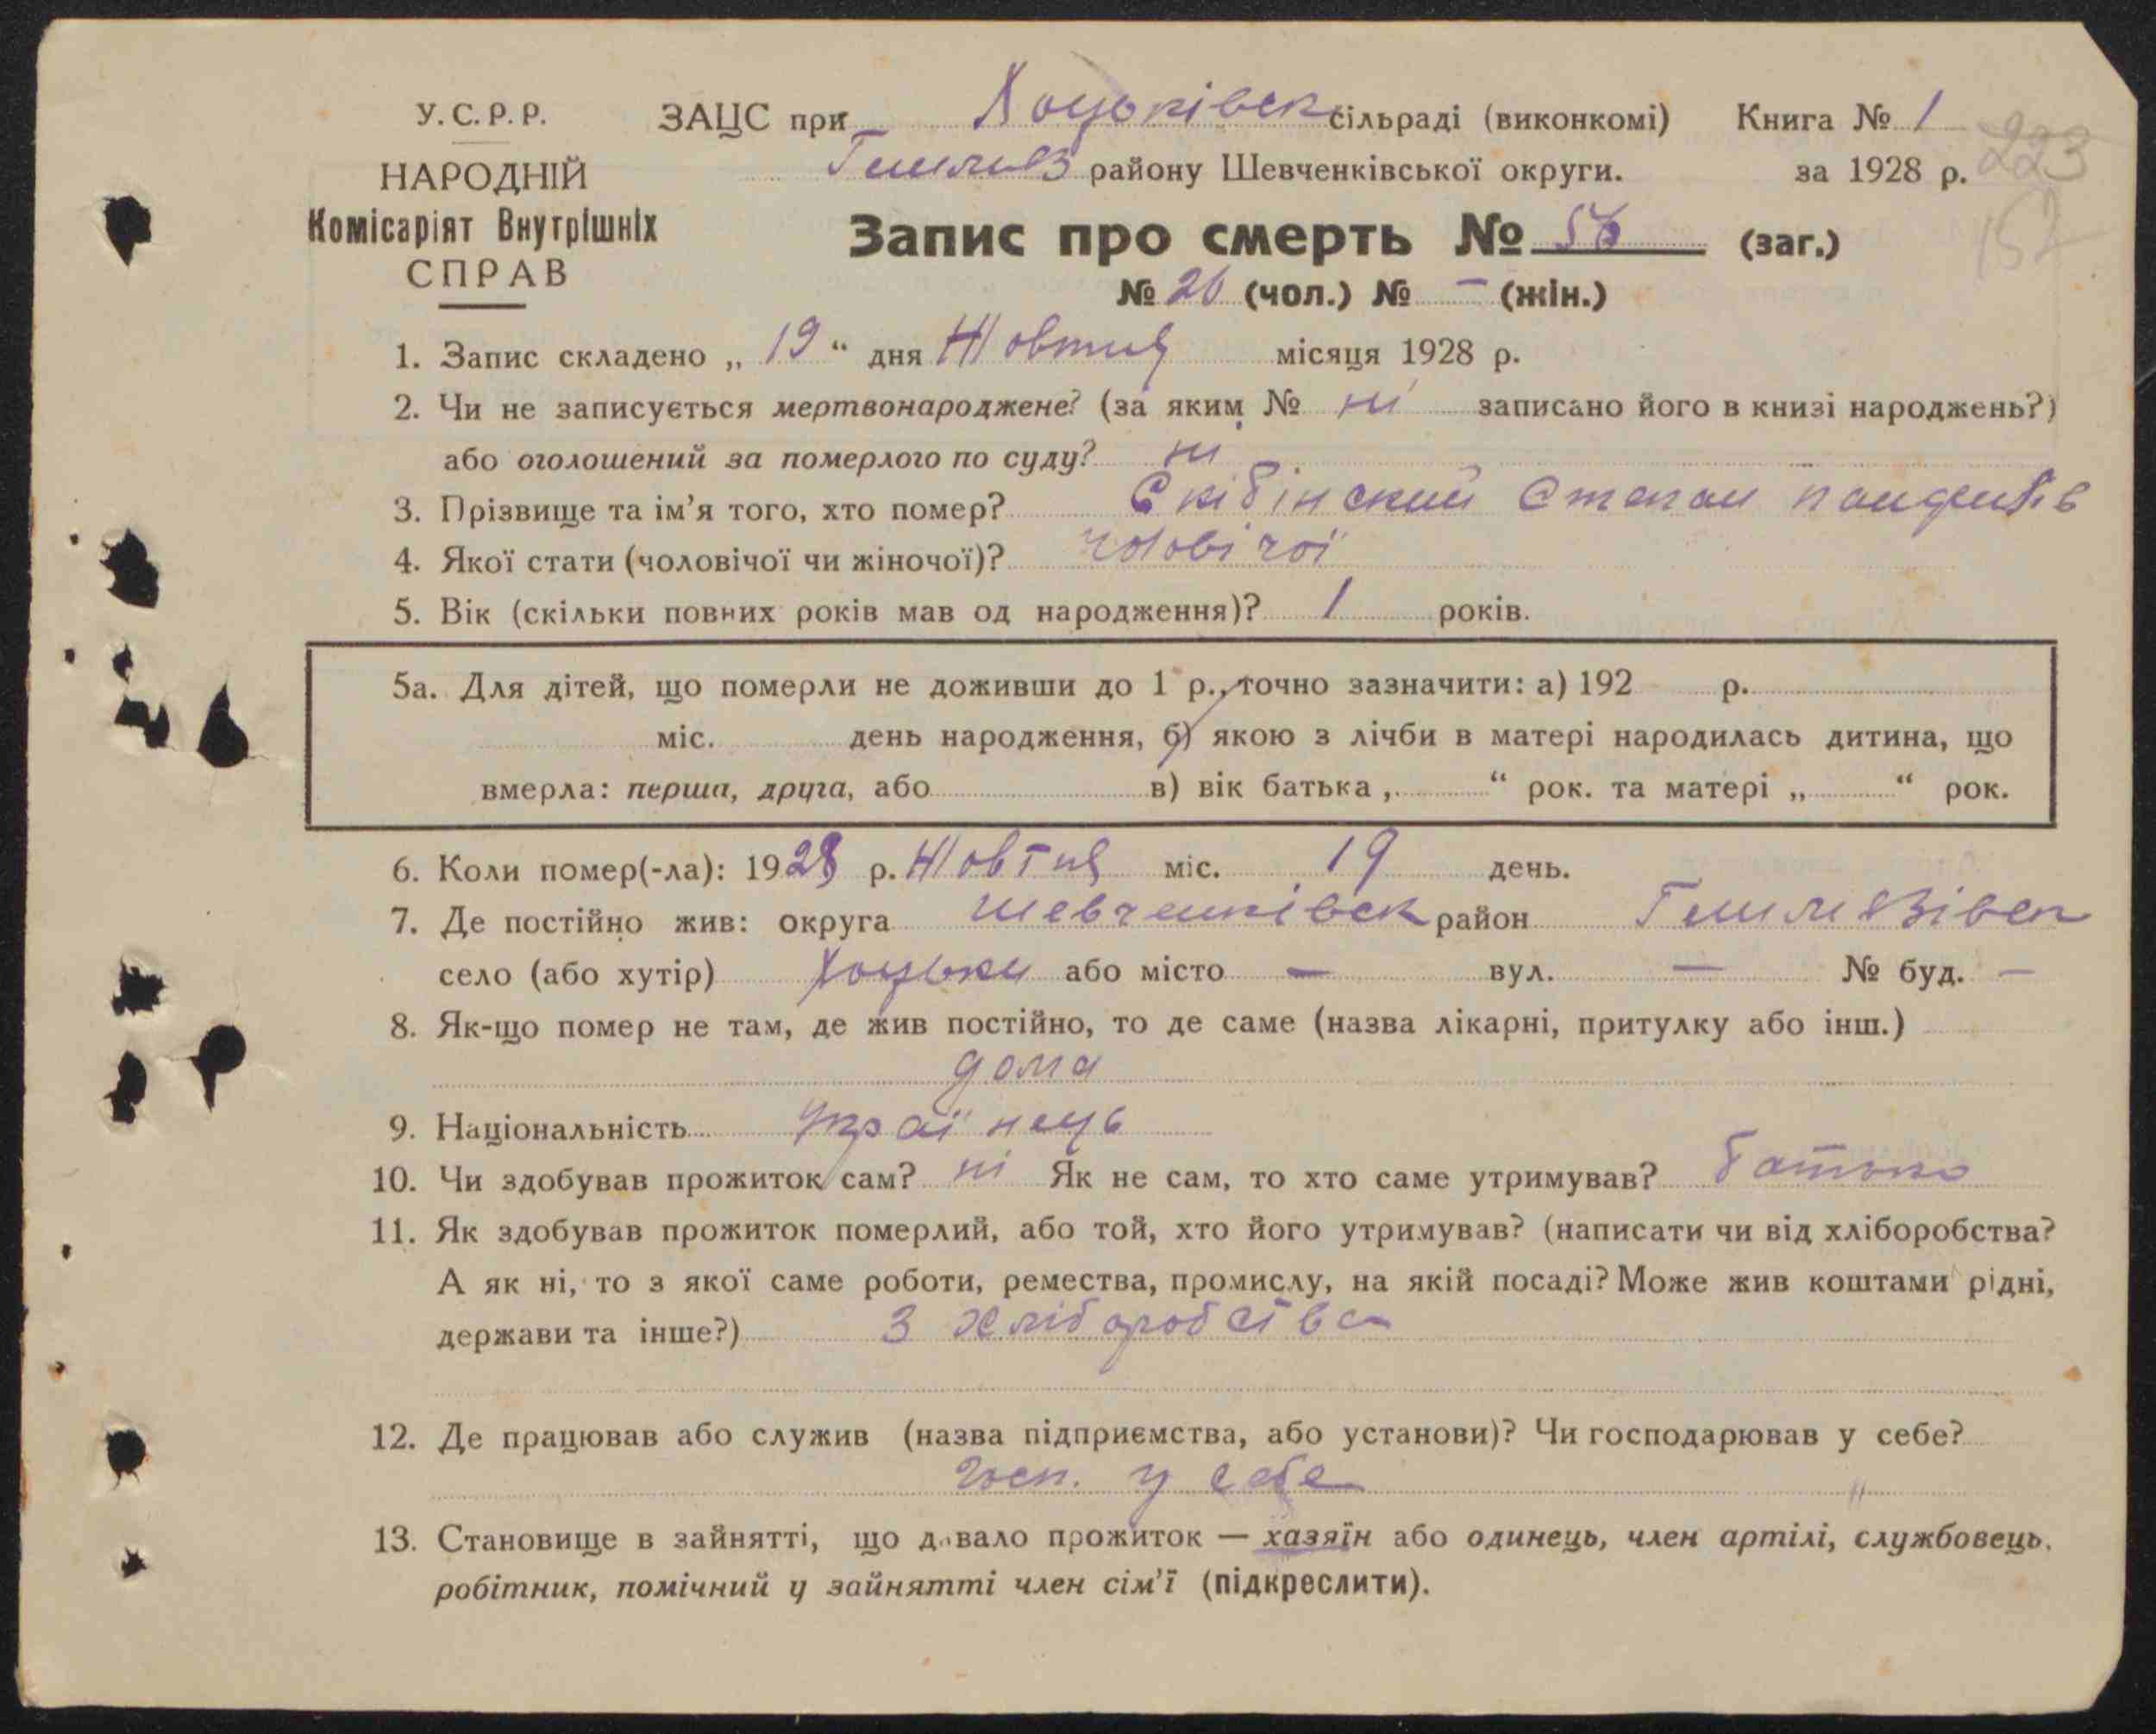 У.С.Р.Р. ЗАЦС при Хоцьківськ сільраді (виконкомі) Книга № 1
223
НАРОДНІЙ Гельмяз району Шевченківської округи. за 1928 р.
157
Комісаріят Внутрішніх
СПРАВ
Запис про смерть № 56 (заг.)
№ 26 (чол.) № – (жін.)
1. Запис складено „ 19 “ дня Жовтня місяця 1928 р.
2. Чи не записується мертвонароджене? (за яким № ні записано його в книзі народжень?)
або оголошений за померлого по суду? ні
3. Прізвище та ім’я того, хто помер? Скібінский Степан
4. Якої стати (чоловічої чи жіночої)? чоловічої
5. Вік (скільки повних років мав од народження)? 1 років.
5а. Для дітей, що померли не доживши до 1 р., точно зазначити: а) 192 р.
міс. день народження, б) якою з лічби в матері народилась дитина, що
вмерла: перша, друга, або в) вік батька „ “ рок. та матері „ “ рок.
6. Коли помер(-ла): 1928 р. Жовтня міс. 19 день.
7. Де постійно жив: округа Шевченківськ район Гельмязівськ
село (або хутір) Хоцьки або місто — вул. — № буд. —
8. Як-що помер не там, де жив постійно, то де саме (назва лікарні, притулку або інш.)
дома
9. Національність Українець
10. Чи здобував прожиток сам? ні Як не сам, то хто саме утримував? батько
11. Як здобував прожиток померлий, або той, хто його утримував? (написати чи від хліборобства?
А як ні, то з якої саме роботи, ремества, промислу, на якій посаді? Може жив коштами рідні,
держави та інше?) З хліборобства
12. Де працював або служив (назва підприємства, або установи)? Чи господарював у себе?
госп. у себе
13. Становище в зайнятті, що давало прожиток — хазяїн або одинець, член артілі, службовець,
робітник, помічний у зайнятті член сім’ї (підкреслити).